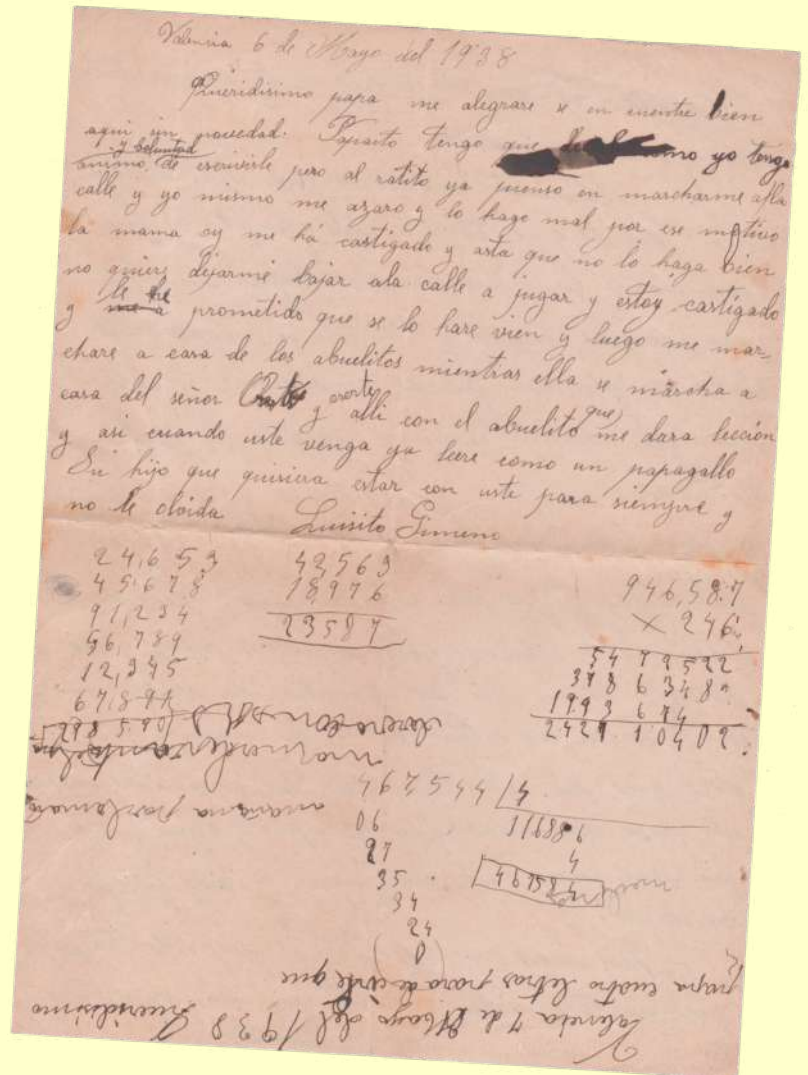 Valencia 6 de Mayo del 1938
Queridisimo papa me alegrare se en cuentre bien
aqui sin novedad. Papasito tengo que yo tengo
y boluntad
animo, de escrivirle pero al ratito ya pienso en marcharme alla
calle y yo mismo me azaro y lo hago mal por ese motivo
la mama oy me há castigado y asta que no lo haga bien
no quiere dejarme bajar ala calle a jugar y estoy castigado
le he
y prometido que se lo hare vien y luego me mar=
chare a casa de los abuelitos mientras ella se marcha a
casa del señor y alli con el abuelito que me dara leccion
y asi cuando uste venga ya leere como un papagallo
Su hijo que quisiera estar con uste para siempre y
no le olvida Luisito Gimeno
24,653 42,563 946,587
45,678 18,976 × 246
91,234 23587
56,789 378 6348
12,345 2421 10402
445294 4
06
27
35
34
24
0
mañana
Valencia 7 de Mayo del 1938 Queridisimo
papa cuatro letras para decirle que